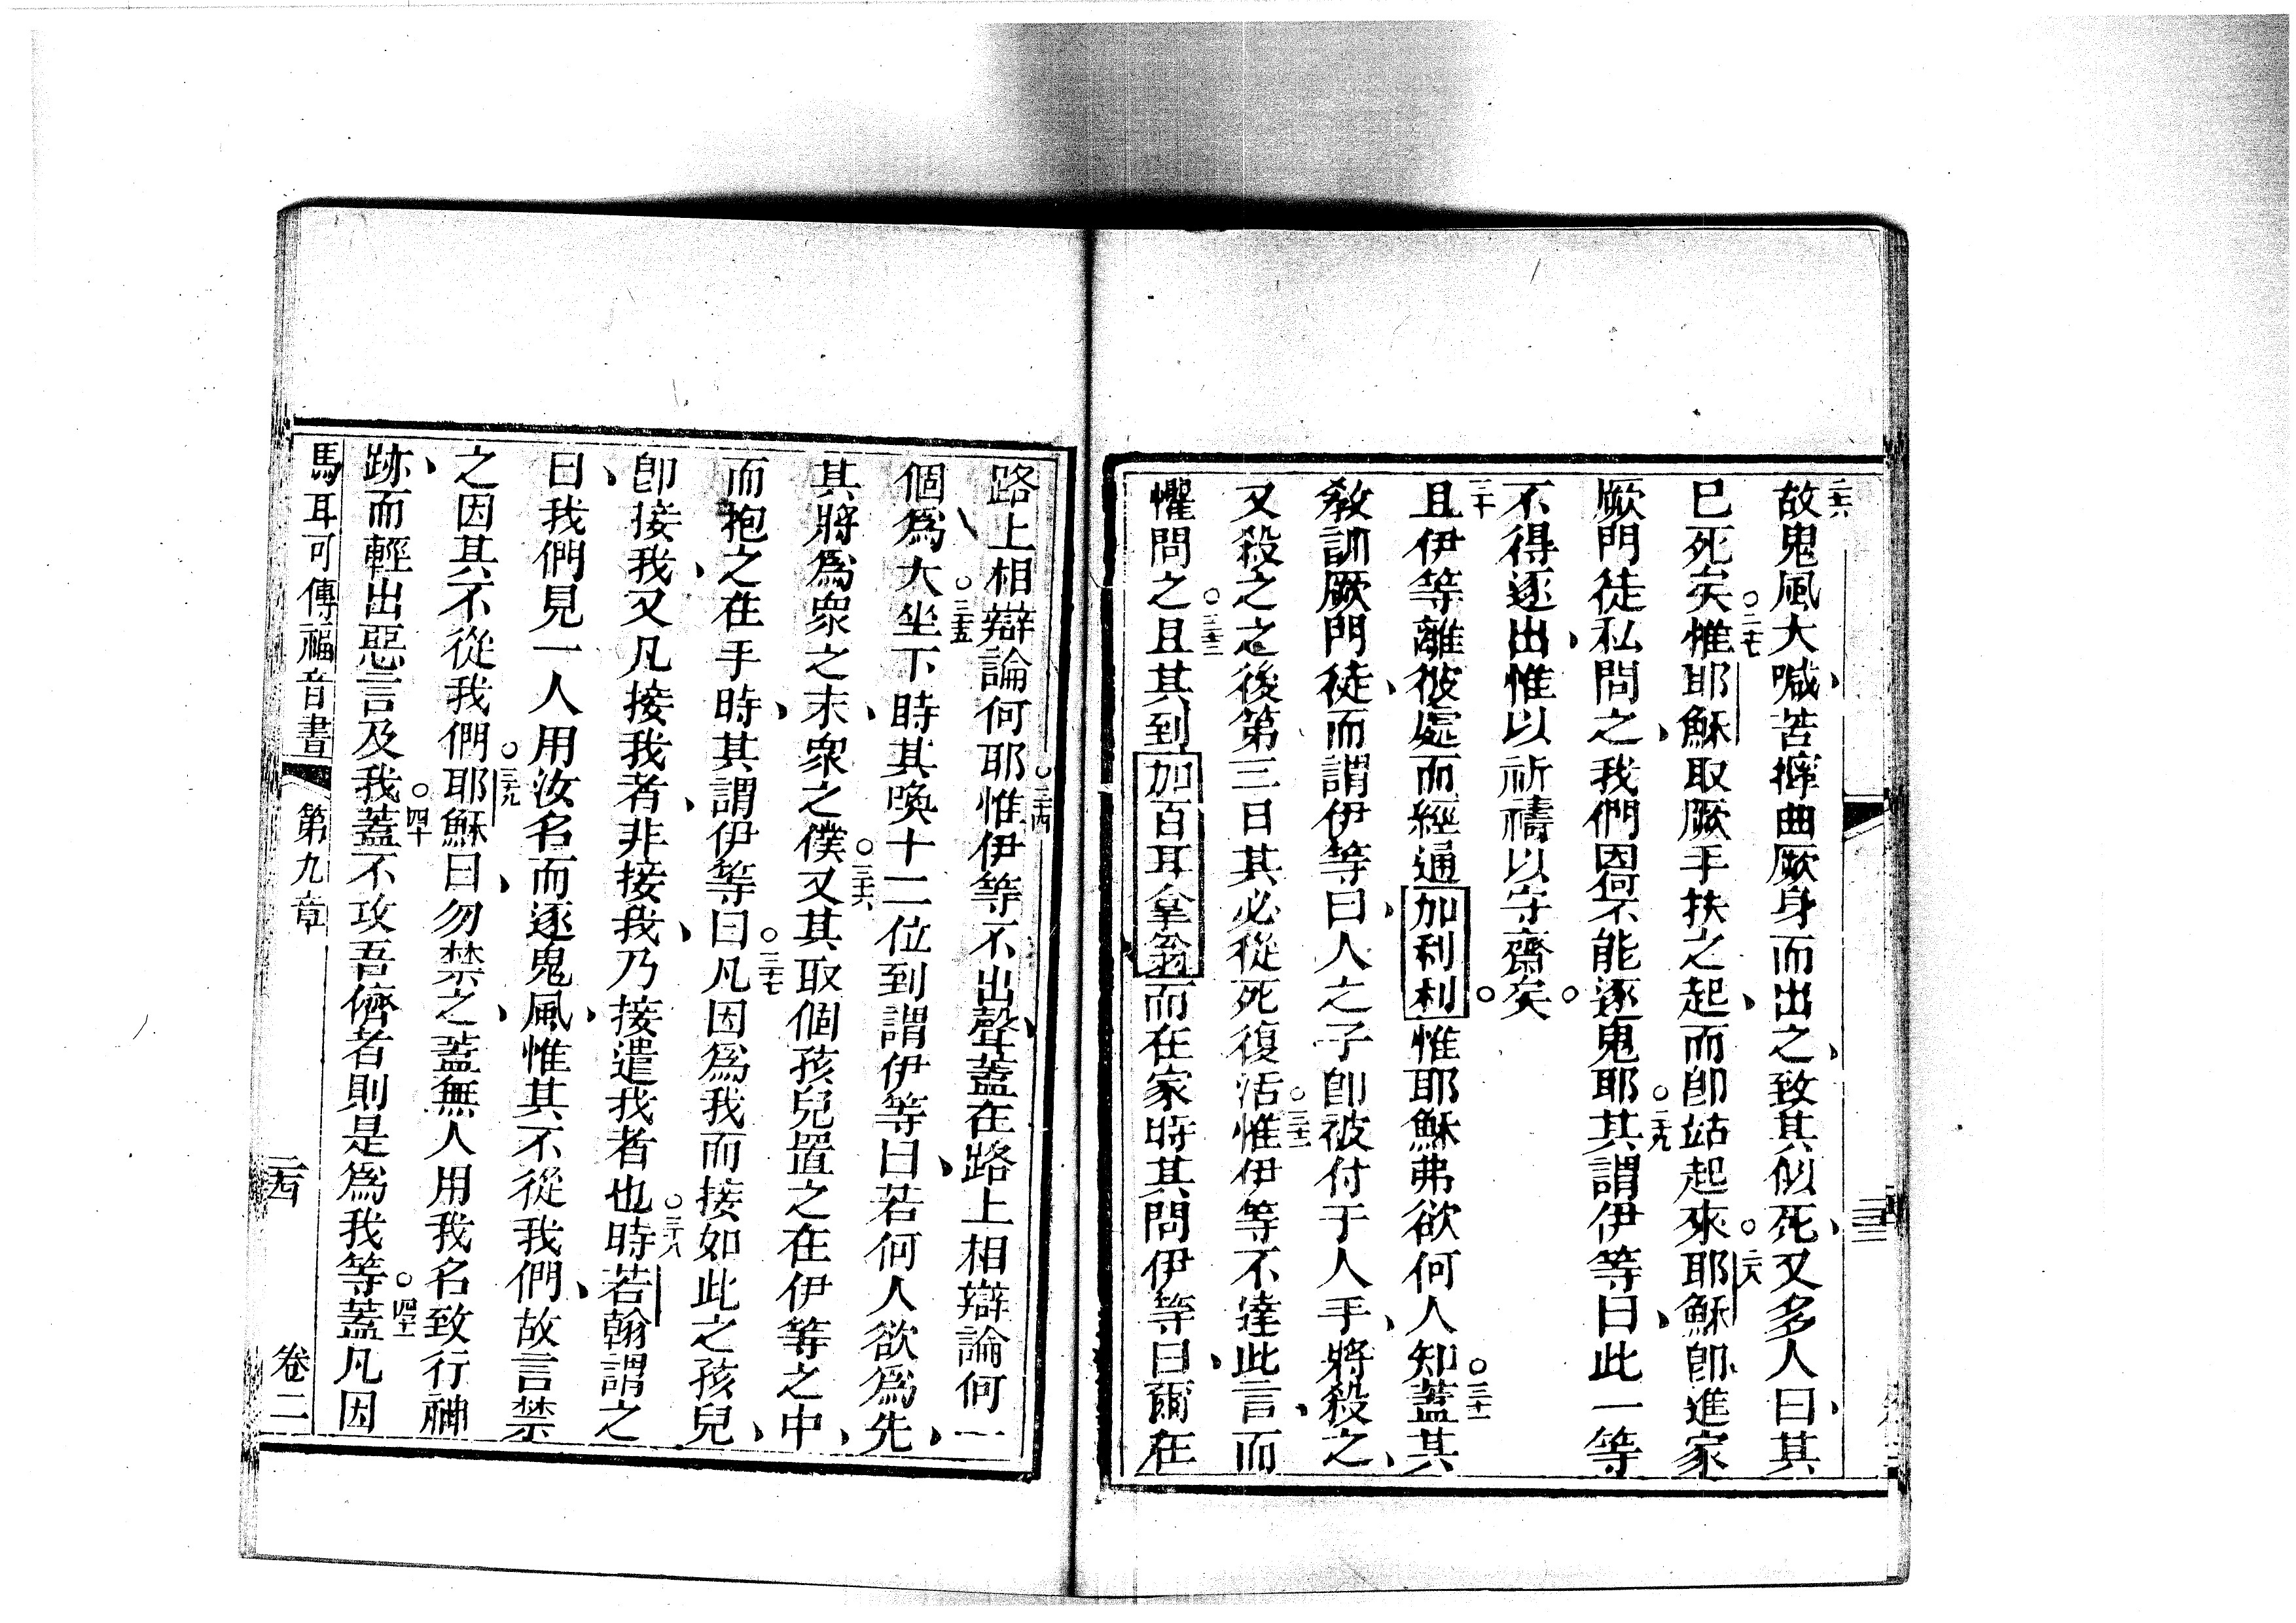 二六故鬼風大喊、苦搾曲厥身而出之、致其似死、又多人曰、其
已死矣○二七惟耶穌取厥手扶之起、而卽站起來○二八耶穌卽進家
厥門徒私問之、我們因何不能逐鬼耶○二九其謂伊等曰、此一等
不得逐出、惟以祈禱以守齋矣○
三十且伊等離彼處而經通加利利○惟耶穌弗欲何人知○三十一蓋其
敎訓厥門徒、而謂伊等曰、人之子卽被付于人手、將殺之、
又殺之之後第三日其必從死復活○三十二惟伊等不達此言、而
懼問之○三十三且其到加百耳拿翁而在家時其問伊等曰、爾在
路上相辯論何耶○三十四惟伊等不出聲、蓋在路上相辯論何一
個爲大○三十五坐下時其喚十二位到謂伊等曰、若何人欲爲先、
其將爲衆之末、衆之僕○三十六又其取個孩兒置之在伊等之中、
而抱之在手時、其謂伊等曰○三十七凡因爲我而接如此之孩兒、
卽接我、又凡接我者、非接我、乃接遣我者也○三十八時若翰謂之
曰、我們見一人用汝名而逐鬼風、惟其不從我們、故言禁
之因其不從我們○三十九耶穌曰、勿禁之、蓋無人用我名致行神
跡、而輕出惡言及我○四十蓋不攻吾儕者則是爲我等○四十一蓋凡因
馬耳可傳福音書 第九章 二十四 卷二